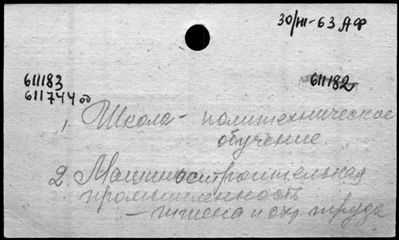 30/III-63 АФ
611183
611182
611744
1, Школа - политехническое
обучение.
2. Машиностроительная
промышленность
- гигиена и охр. труда